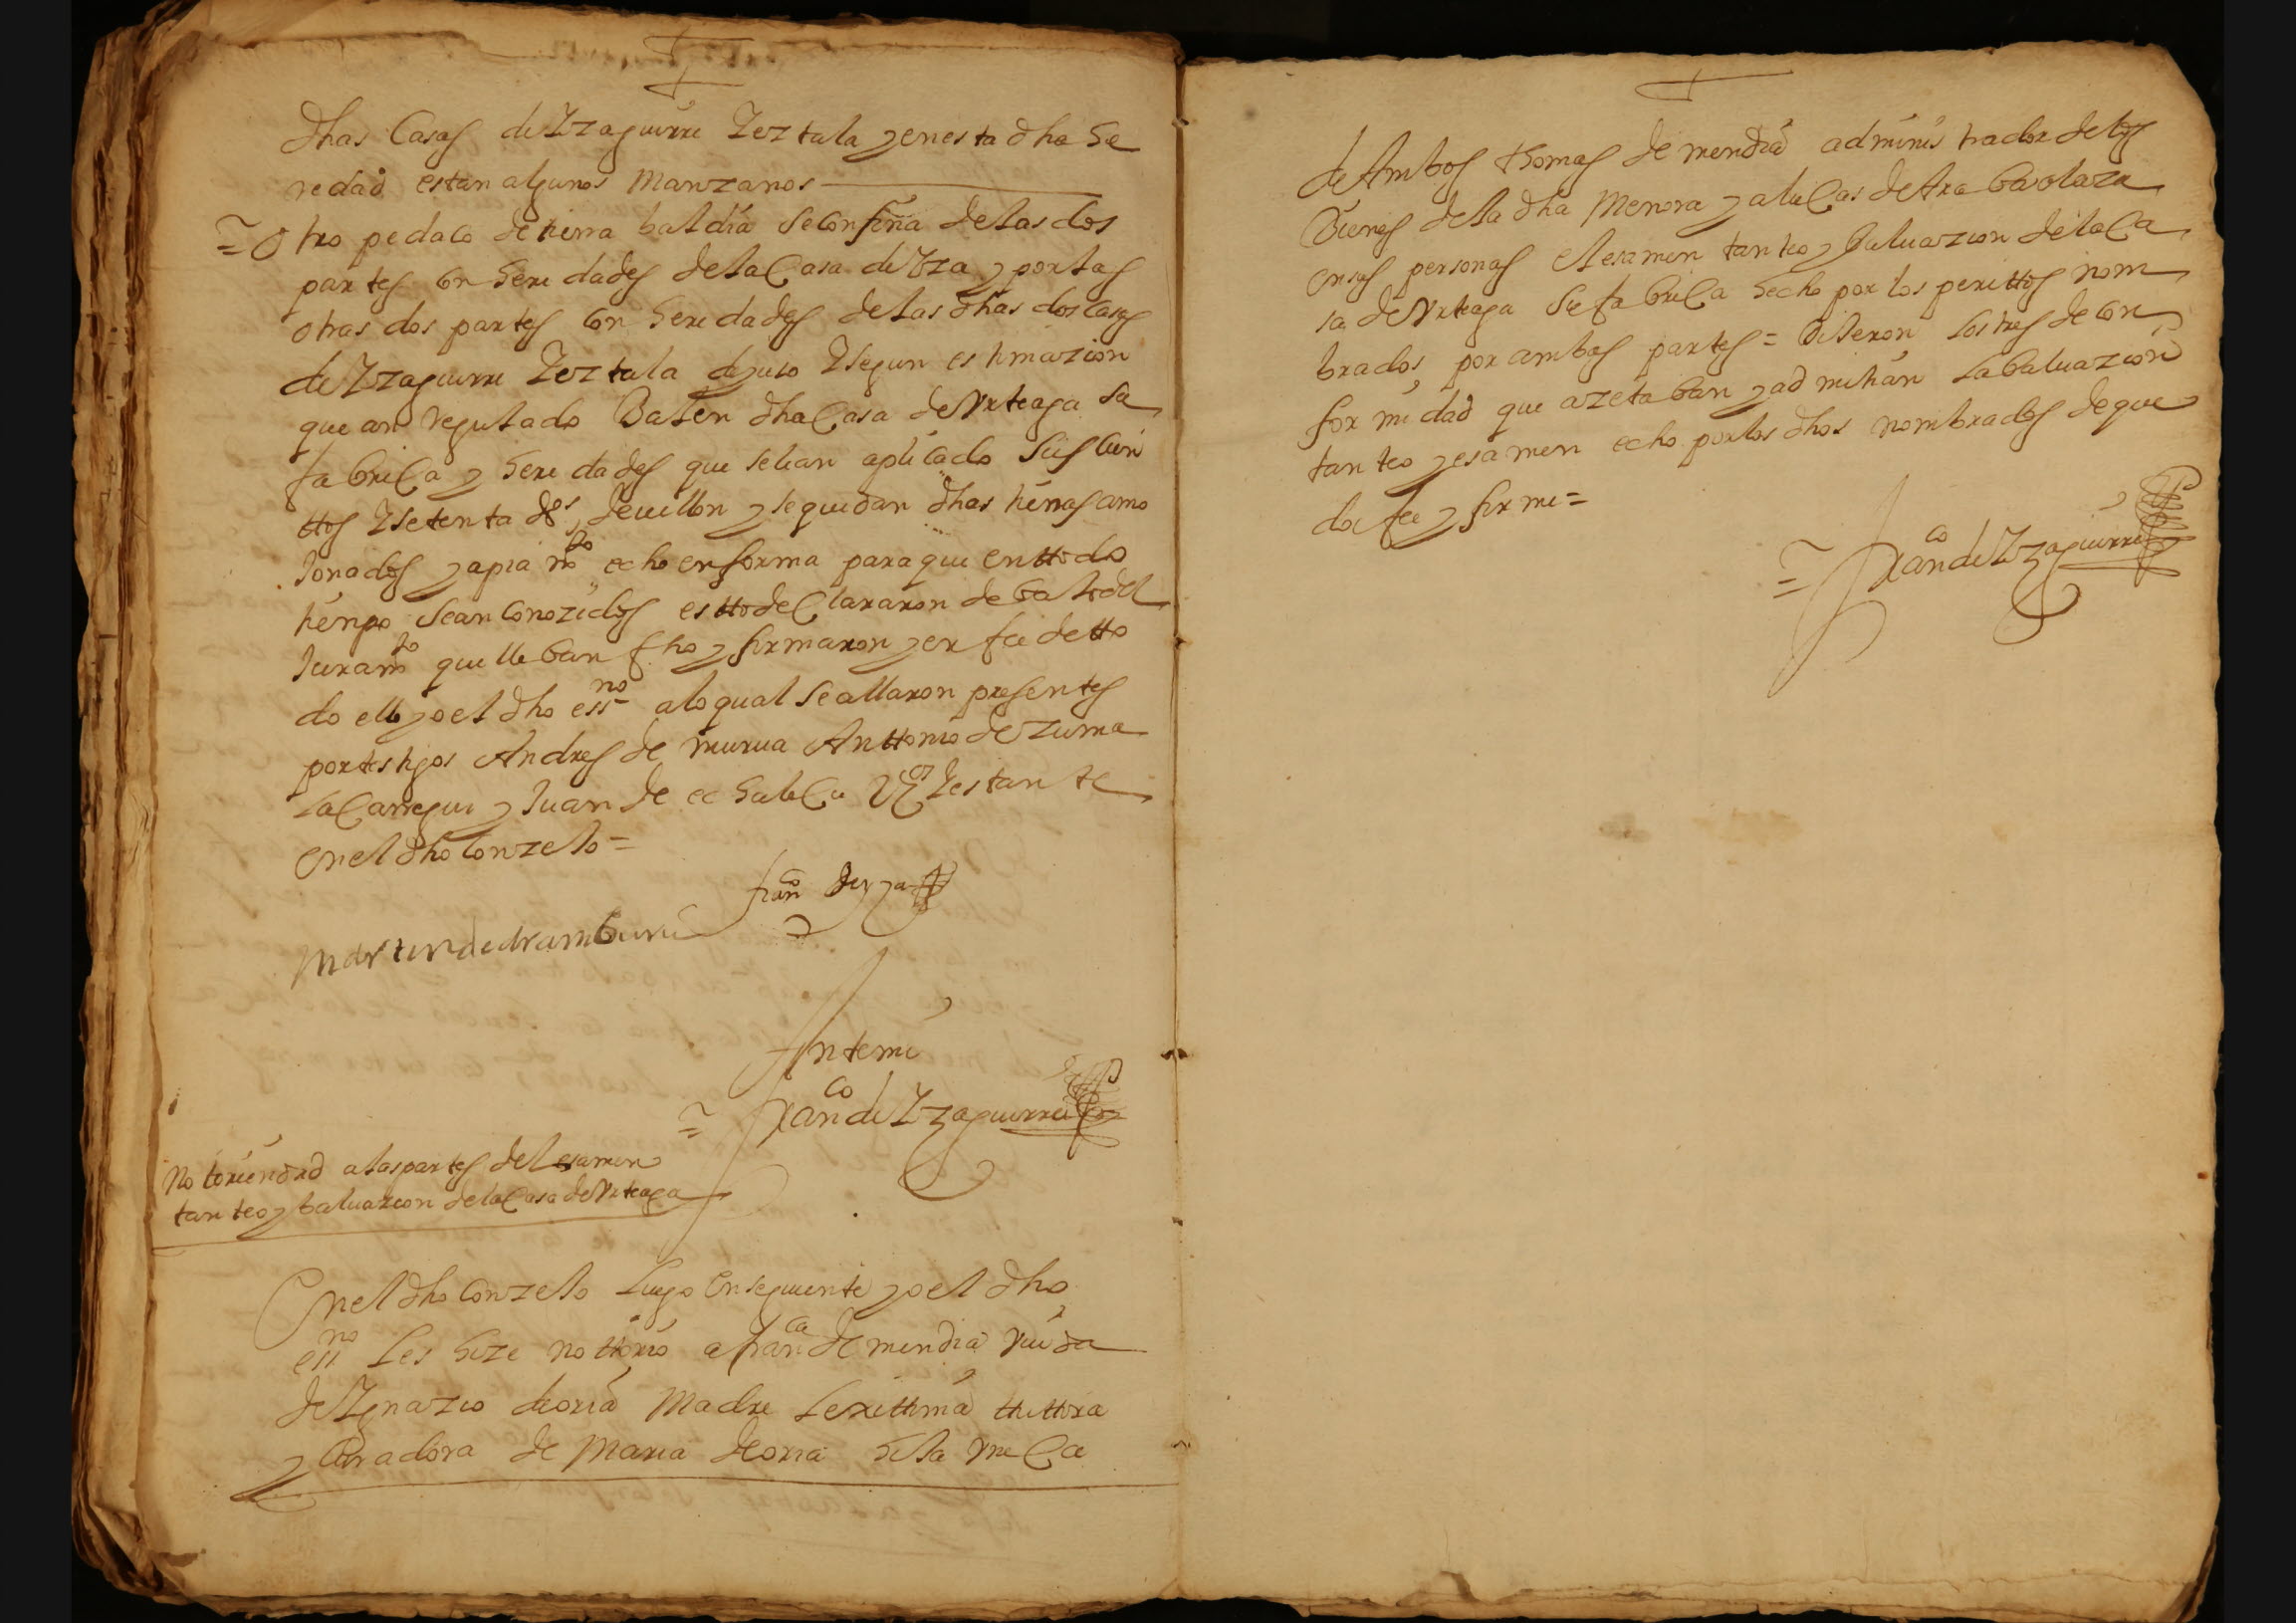 dhas Casas de Yzaguirre Yeztala y en esta dha he
redad estan algunos manzanos
= Otro pedaco de tierra baldia se confina de las dos
partes con heredades de la Casa de Yza y por las
otras dos partes con heredades de las dhas dos casas
de Yzaguirre Yeztala de yuso Y segun estimazion
que an reputado Balen dha Casa de Vrteaga sa
fabrica y heredades que se le an aplicado Seis cien
ttos Y setenta ds de vellon y se quedan dhas tierras amo
Jonados y apiamto echo en forma para que en ttodo
tienpo sean conozidos estto declararon de baxo del
Juramto que lleban fho y firmaron y en fee de tto
do ello yo el dho essno a lo qual se allaron presentes
por testigos Andres de murua Anttonio de Zuma
lacarregui y Juan de echabeCu Vos Yestante
en el dho Conzeto =
franco de yza
Martin de Aramburu
Ante mi
= franco de Yzaguirre
Notoriendad a las partes del esamen
tanteo y baluazion de la Casa de Vrteaga
En el dho Conzeto Luego Enseguiente yo el dho
essno Les hize nottorio a franca de mendia viuda
de Ygnazio de oria Madre Lexittima ttuttora
y Curadora de Maria de oria hixa vnica
de Ambos thomas de mendia administrador de los
Bienes de la dha Menora y a lucas de Arabaolaza
en sus personas el esamen tanteo y baluazion de la Ca
sa de Vrteaga Su fabrica hecho por los perittos nom
brados por ambas partes = Dixeron los tres de con
formidad que azetaban y admitian la baluazion
tanteo y esamen echo por los dhos nombrados de que
doi fee y firme =
= franco de Yzaguirre